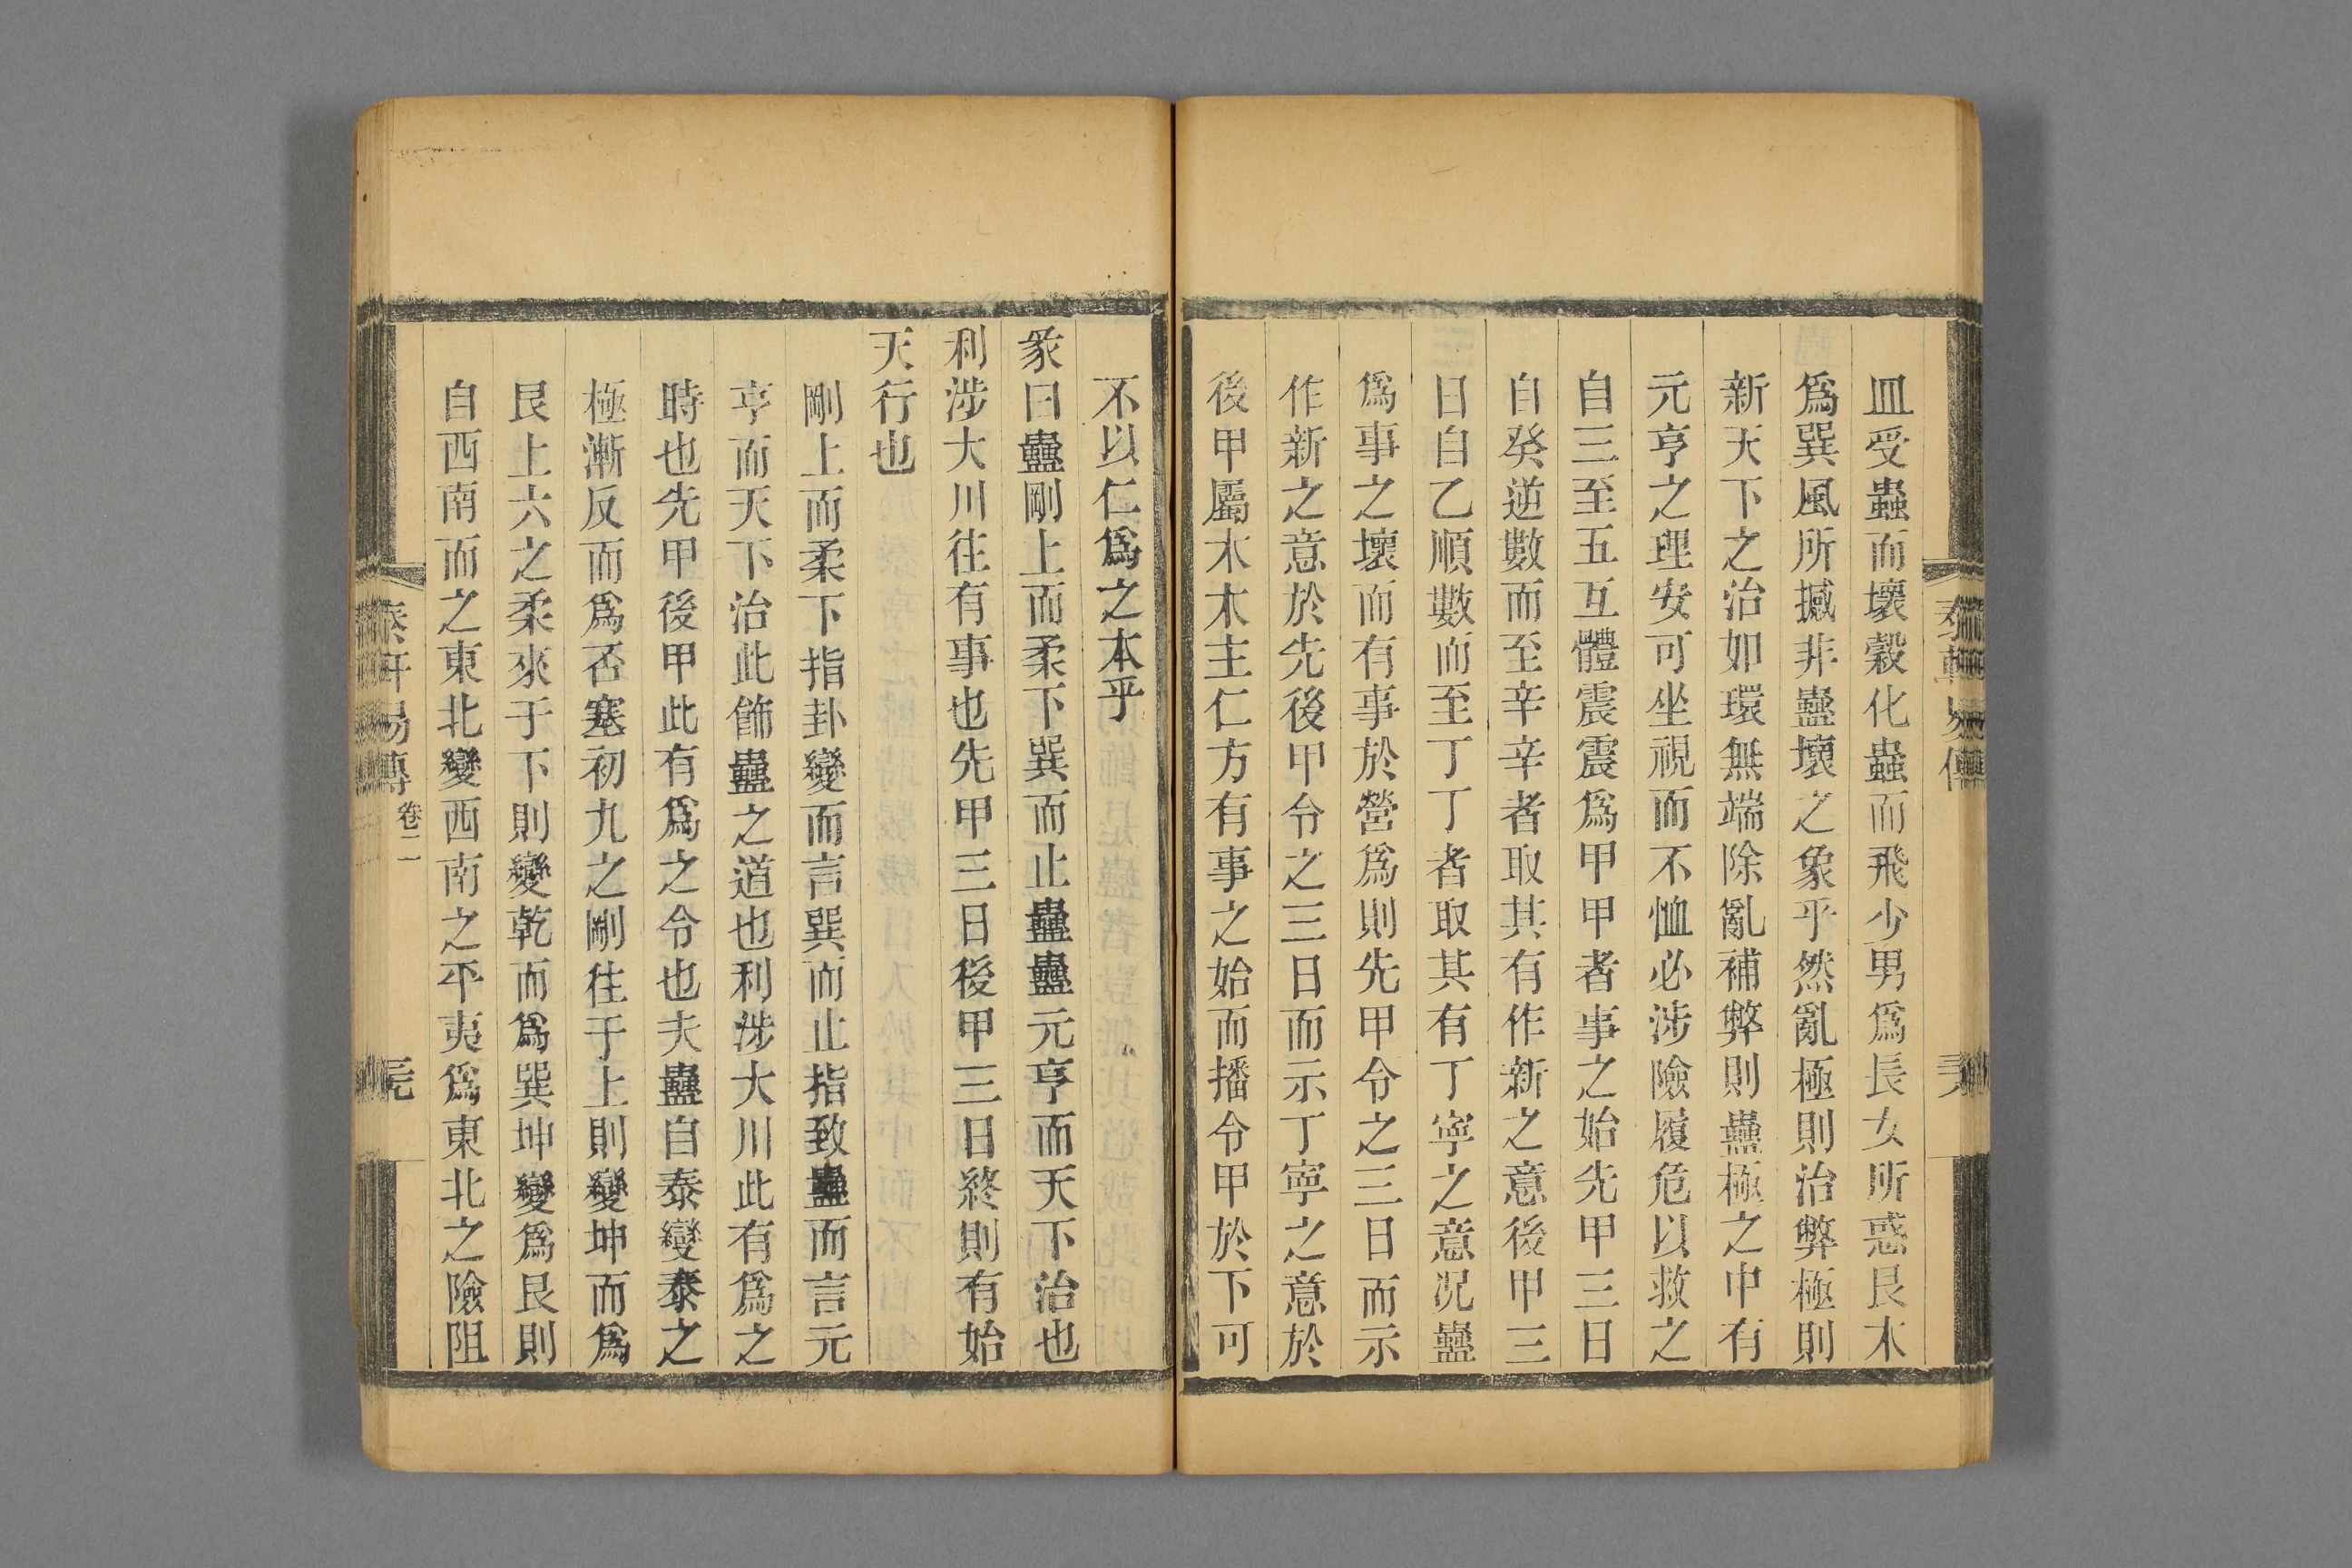 皿受蟲而壞穀化蟲而飛少男爲長女所惑艮木
爲巽風所撼非蠱壞之象乎然亂極則治弊極則
新天下之治如環無端除亂補弊則蠱極之中有
元亨之理安可坐視而不恤必涉險履危以救之
自三至五互體震震爲甲甲者事之始先甲三日
自癸逆數而至辛辛者取其有作新之意後甲三
日自乙順數而至丁丁者取其有丁寧之意況蠱
爲事之壞而有事於營爲則先甲令之三日而示
作新之意於先後甲令之三日而示丁寧之意於
後甲屬木木主仁方有事之始而播令甲於下可
不以仁爲之本乎
彖曰蠱剛上而柔下巽而止蠱蠱元亨而天下治也
利涉大川往有事也先甲三日後甲三日終則有始
天行也
剛上而柔下指卦變而言巽而止指致蠱而言元
亨而天下治此飭蠱之道也利涉大川此有爲之
時也先甲後甲此有爲之令也夫蠱自泰變泰之
極漸反而爲否塞初九之剛往于上則變坤而爲
艮上六之柔來于下則變乾而爲巽坤變爲艮則
自西南而之東北變西南之平夷爲東北之險阻
易傳
卷二